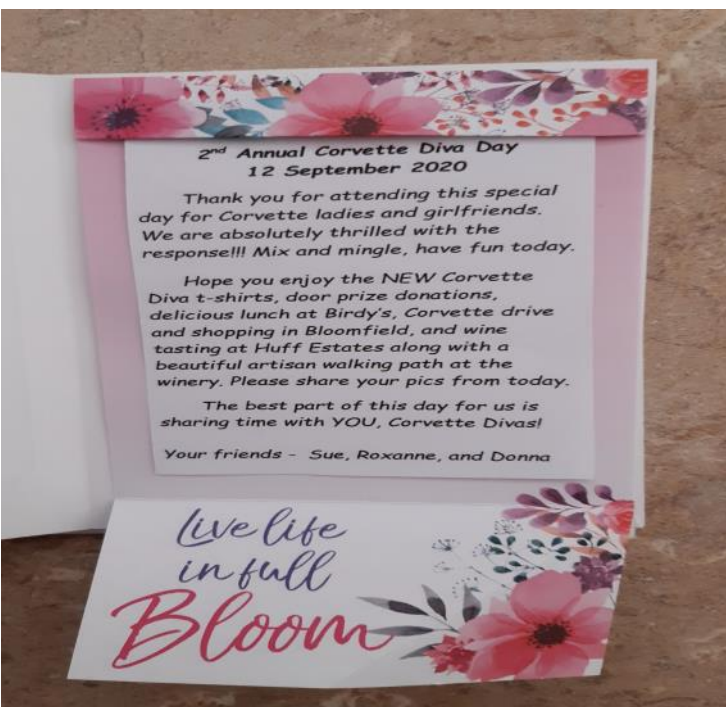 2nd Annual Corvette Diva Day
12 September 2020
Thank you for attending this special
day for Corvette ladies and girlfriends.
We are absolutely thrilled with the
response!!! Mix and mingle, have fun today.
Hope you enjoy the NEW Corvette
Diva t-shirts, door prize donations,
delicious lunch at Birdy's, Corvette drive
and shopping in Bloomfield, and wine
tasting at Huff Estates along with a
beautiful artisan walking path at the
winery. Please share your pics from today.
The best part of this day for us is
sharing time with YOU, Corvette Divas!
Your friends - Sue, Roxanne, and Donna
Live life
in full
Bloom